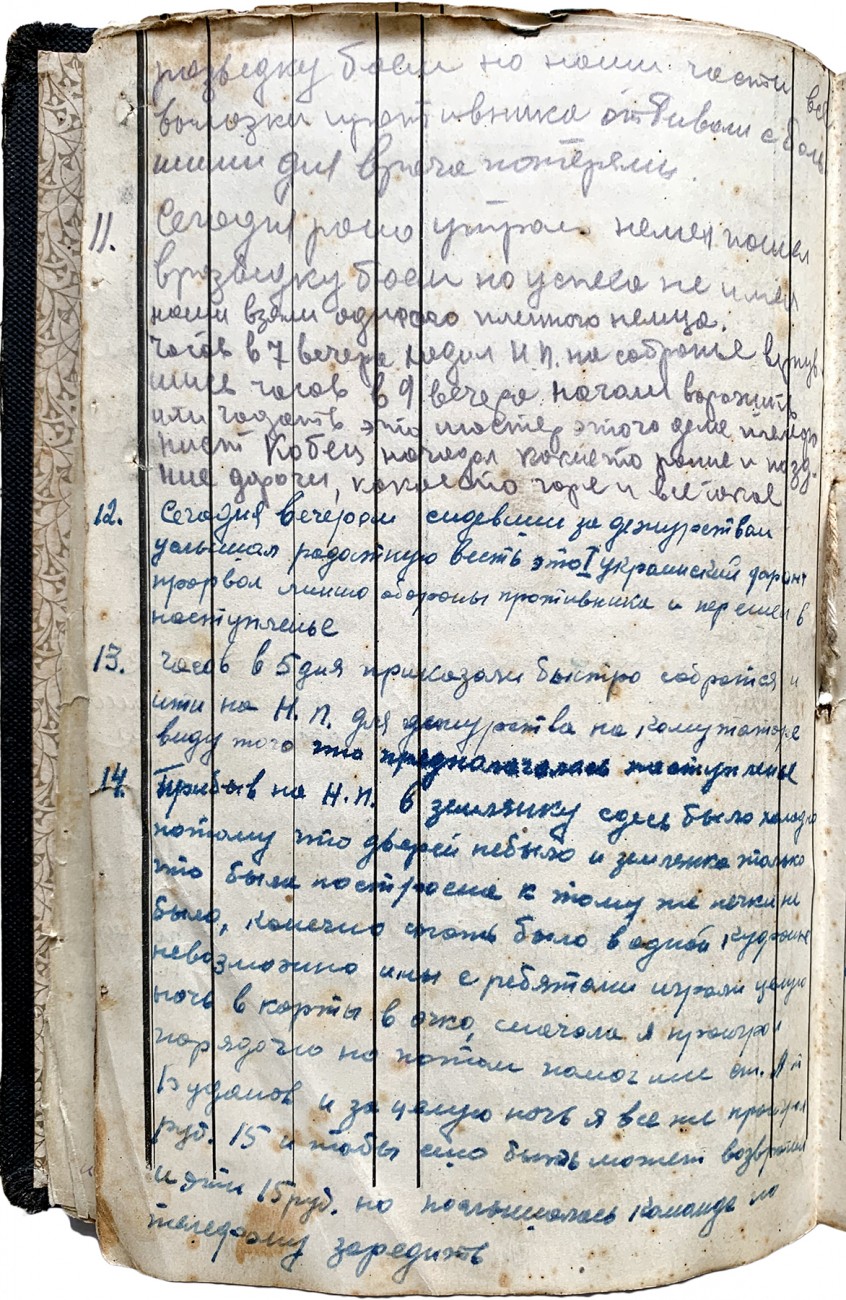 розведку боем но наши части все
вылазки противника отбивали с боль
шими для врага потерями.
11. Сегодня рано утром немец пошел
в розведку боем но успеха не имел
наши взяли одного пленного немца.
Часов в 7 вечера ходил Н.П. на собранье вернув
шись часов в 9 вечера начали ворожить
или гадать это мастер этого дела
Кобец нагадал какието ранние и позд-
ние дороги, какоето горе и всетакое
12. Сегодня вечером сидевши за дежурством
услышал радостную весть это I украинский фронт
прорвал линию обороны противника и перешел в
наступленье
13. Часов в 5 дня приказали быстро собратся и
ити на Н.П. для дежурства на комутаторе
виду того что предпалагалась наступленье
14. Прибыв на Н.П. в землянку сдесь было холодно
потому что дверей небыло и землянка только
что была построена к тому же печки не
было, конечно спать было в одной
невозможно и мы с ребятами играли целую
ночь в карты в очко, сначала я проиграл
порядочно но потом помог мне ст. л-т
Буданов и за целую ночь я все же проиграл
руб. 15 и чтобы ещо быть может возвратил
и эти 15 руб. но послышалась команда по
телефону заредить